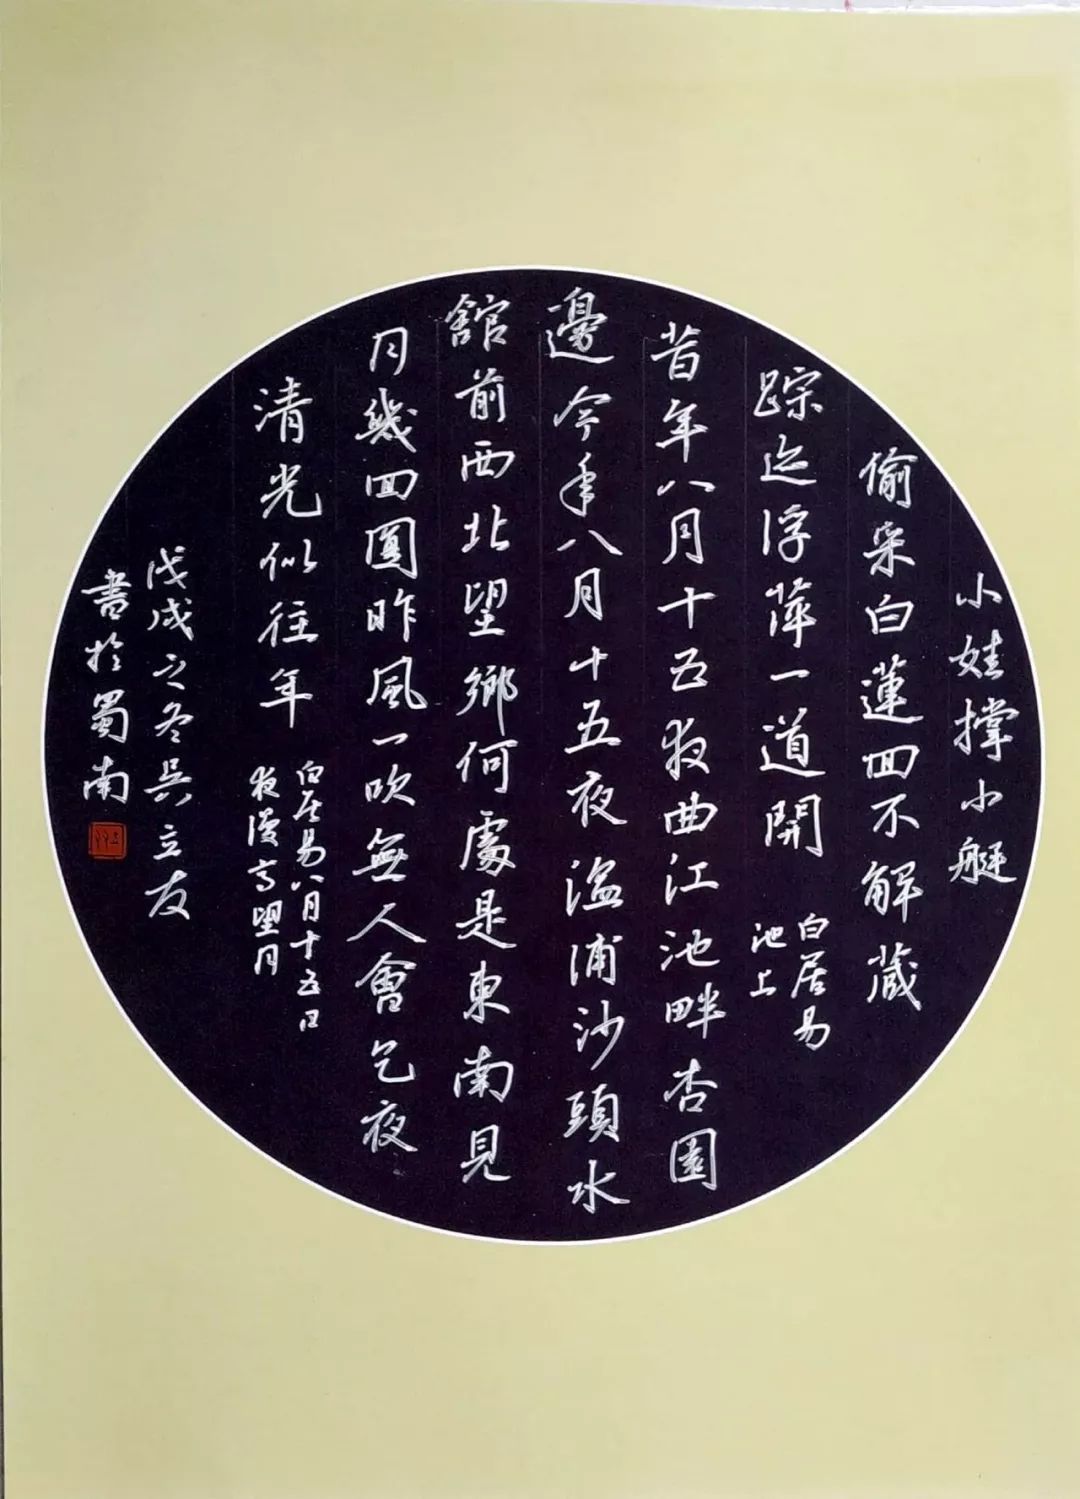 小娃撑小艇
偷采白蓮回不解藏
踪迹浮萍一道開
白居易
池上
昔年八月十五夜曲江池畔杏園
邊今年八月十五夜湓浦沙頭水
館前西北望鄉何處是東南見
月幾回圓昨風一吹無人會乞夜
清光似往年
白居易八月十五日
夜湓亭望月
戊戌之冬吴立友
書於蜀南